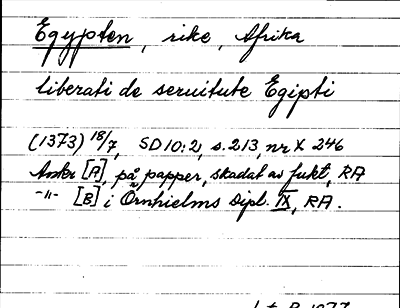 Egypten, rike, Afrika
liberati de seruitute Egipti
(1373) 18/7, SD 10:2, s. 213, nr X 246
[A], på papper, skadat av fukt, RA
-"- [B] i Örnhielms Dipl. IX, RA.